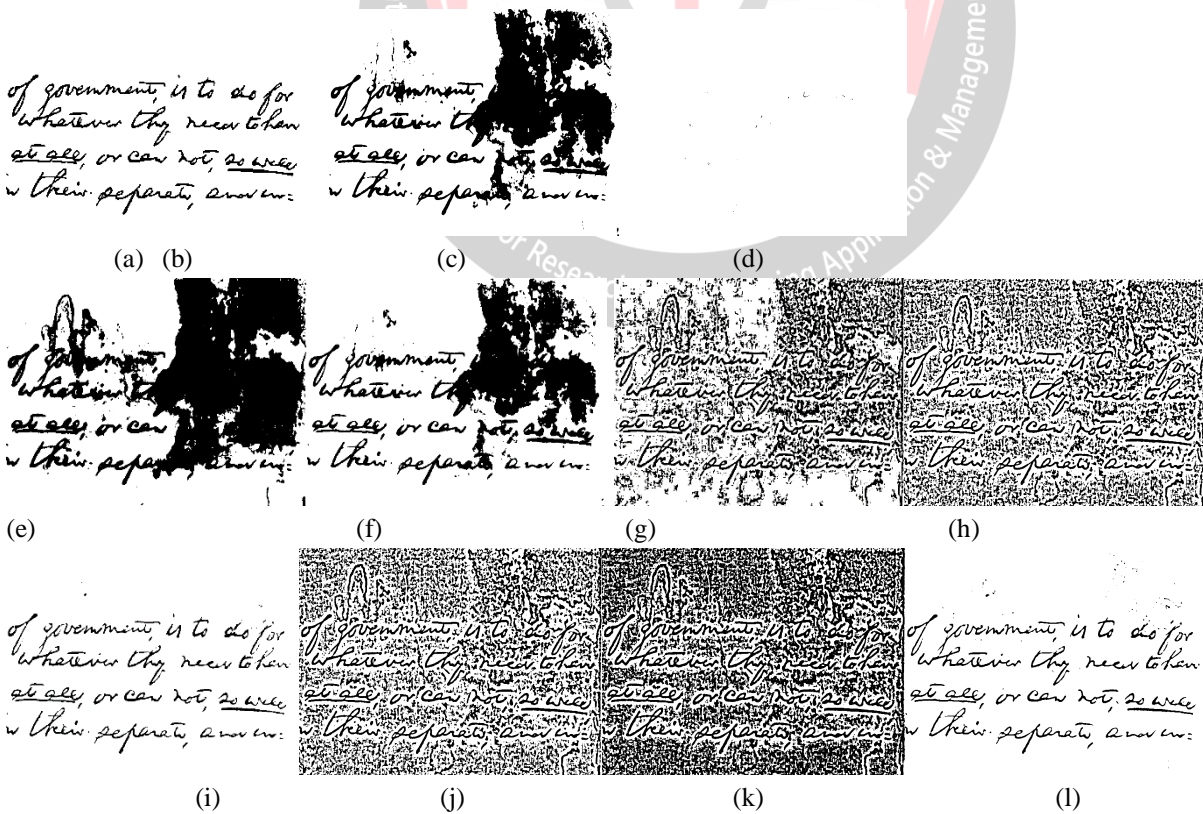 of government, is to do for
whatever they need to have
at all, or can not, so well
their separate, and in=
of government,
whatever
at all, or can not, so well
their separate, and in=
(a) (b) (c) (d)
of government
whatever
at all, or can
their
of government,
whatever
at all, or can not, so well
their separate, and in=
of government is to do for
whatever they need to have
at all, or can not, so well
their separate, and in=
of government is to do for
whatever they need to have
at all, or can not, so well
their separate, and in=
(e) (f) (g) (h)
of government, is to do for
whatever they need to have
at all, or can not, so well
their separate, and in=
of government is to do for
whatever they need to have
at all, or can not, so well
their separate, and in=
of government is to do for
whatever they need to have
at all, or can not, so well
their separate, and in=
of government, is to do for
whatever they need to have
at all, or can not, so well
their separate, and in=
(i) (j) (k) (l)